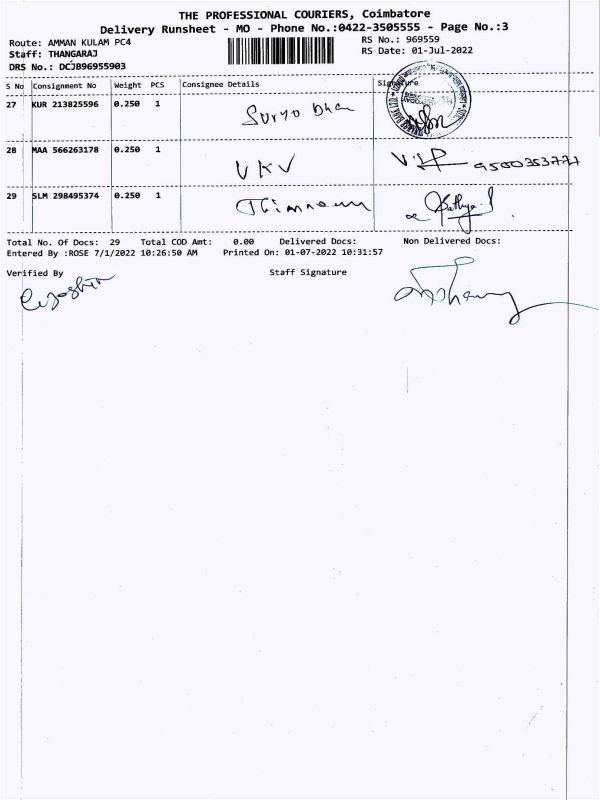 THE PROFESSIONAL COURIERS, Coimbatore
Delivery Runsheet - MO - Phone No.:0422-3505555 - Page No.:3
Route: AMMAN KULAM PC4 RS No.: 969559
Staff: THANGARAJ RS Date: 01-Jul-2022
DRS No.: DCJB96955903
S No Consignment No Weight PCS Consignee Details Signature
27 KUR 213825596 0.250 1
28 MAA 566263178 0.250 1 VKV
29 SLM 298495374 0.250 1
Total No. Of Docs: 29 Total COD Amt: 0.00 Delivered Docs: Non Delivered Docs:
Entered By :ROSE 7/1/2022 10:26:50 AM Printed On: 01-07-2022 10:31:57
Verified By Staff Signature